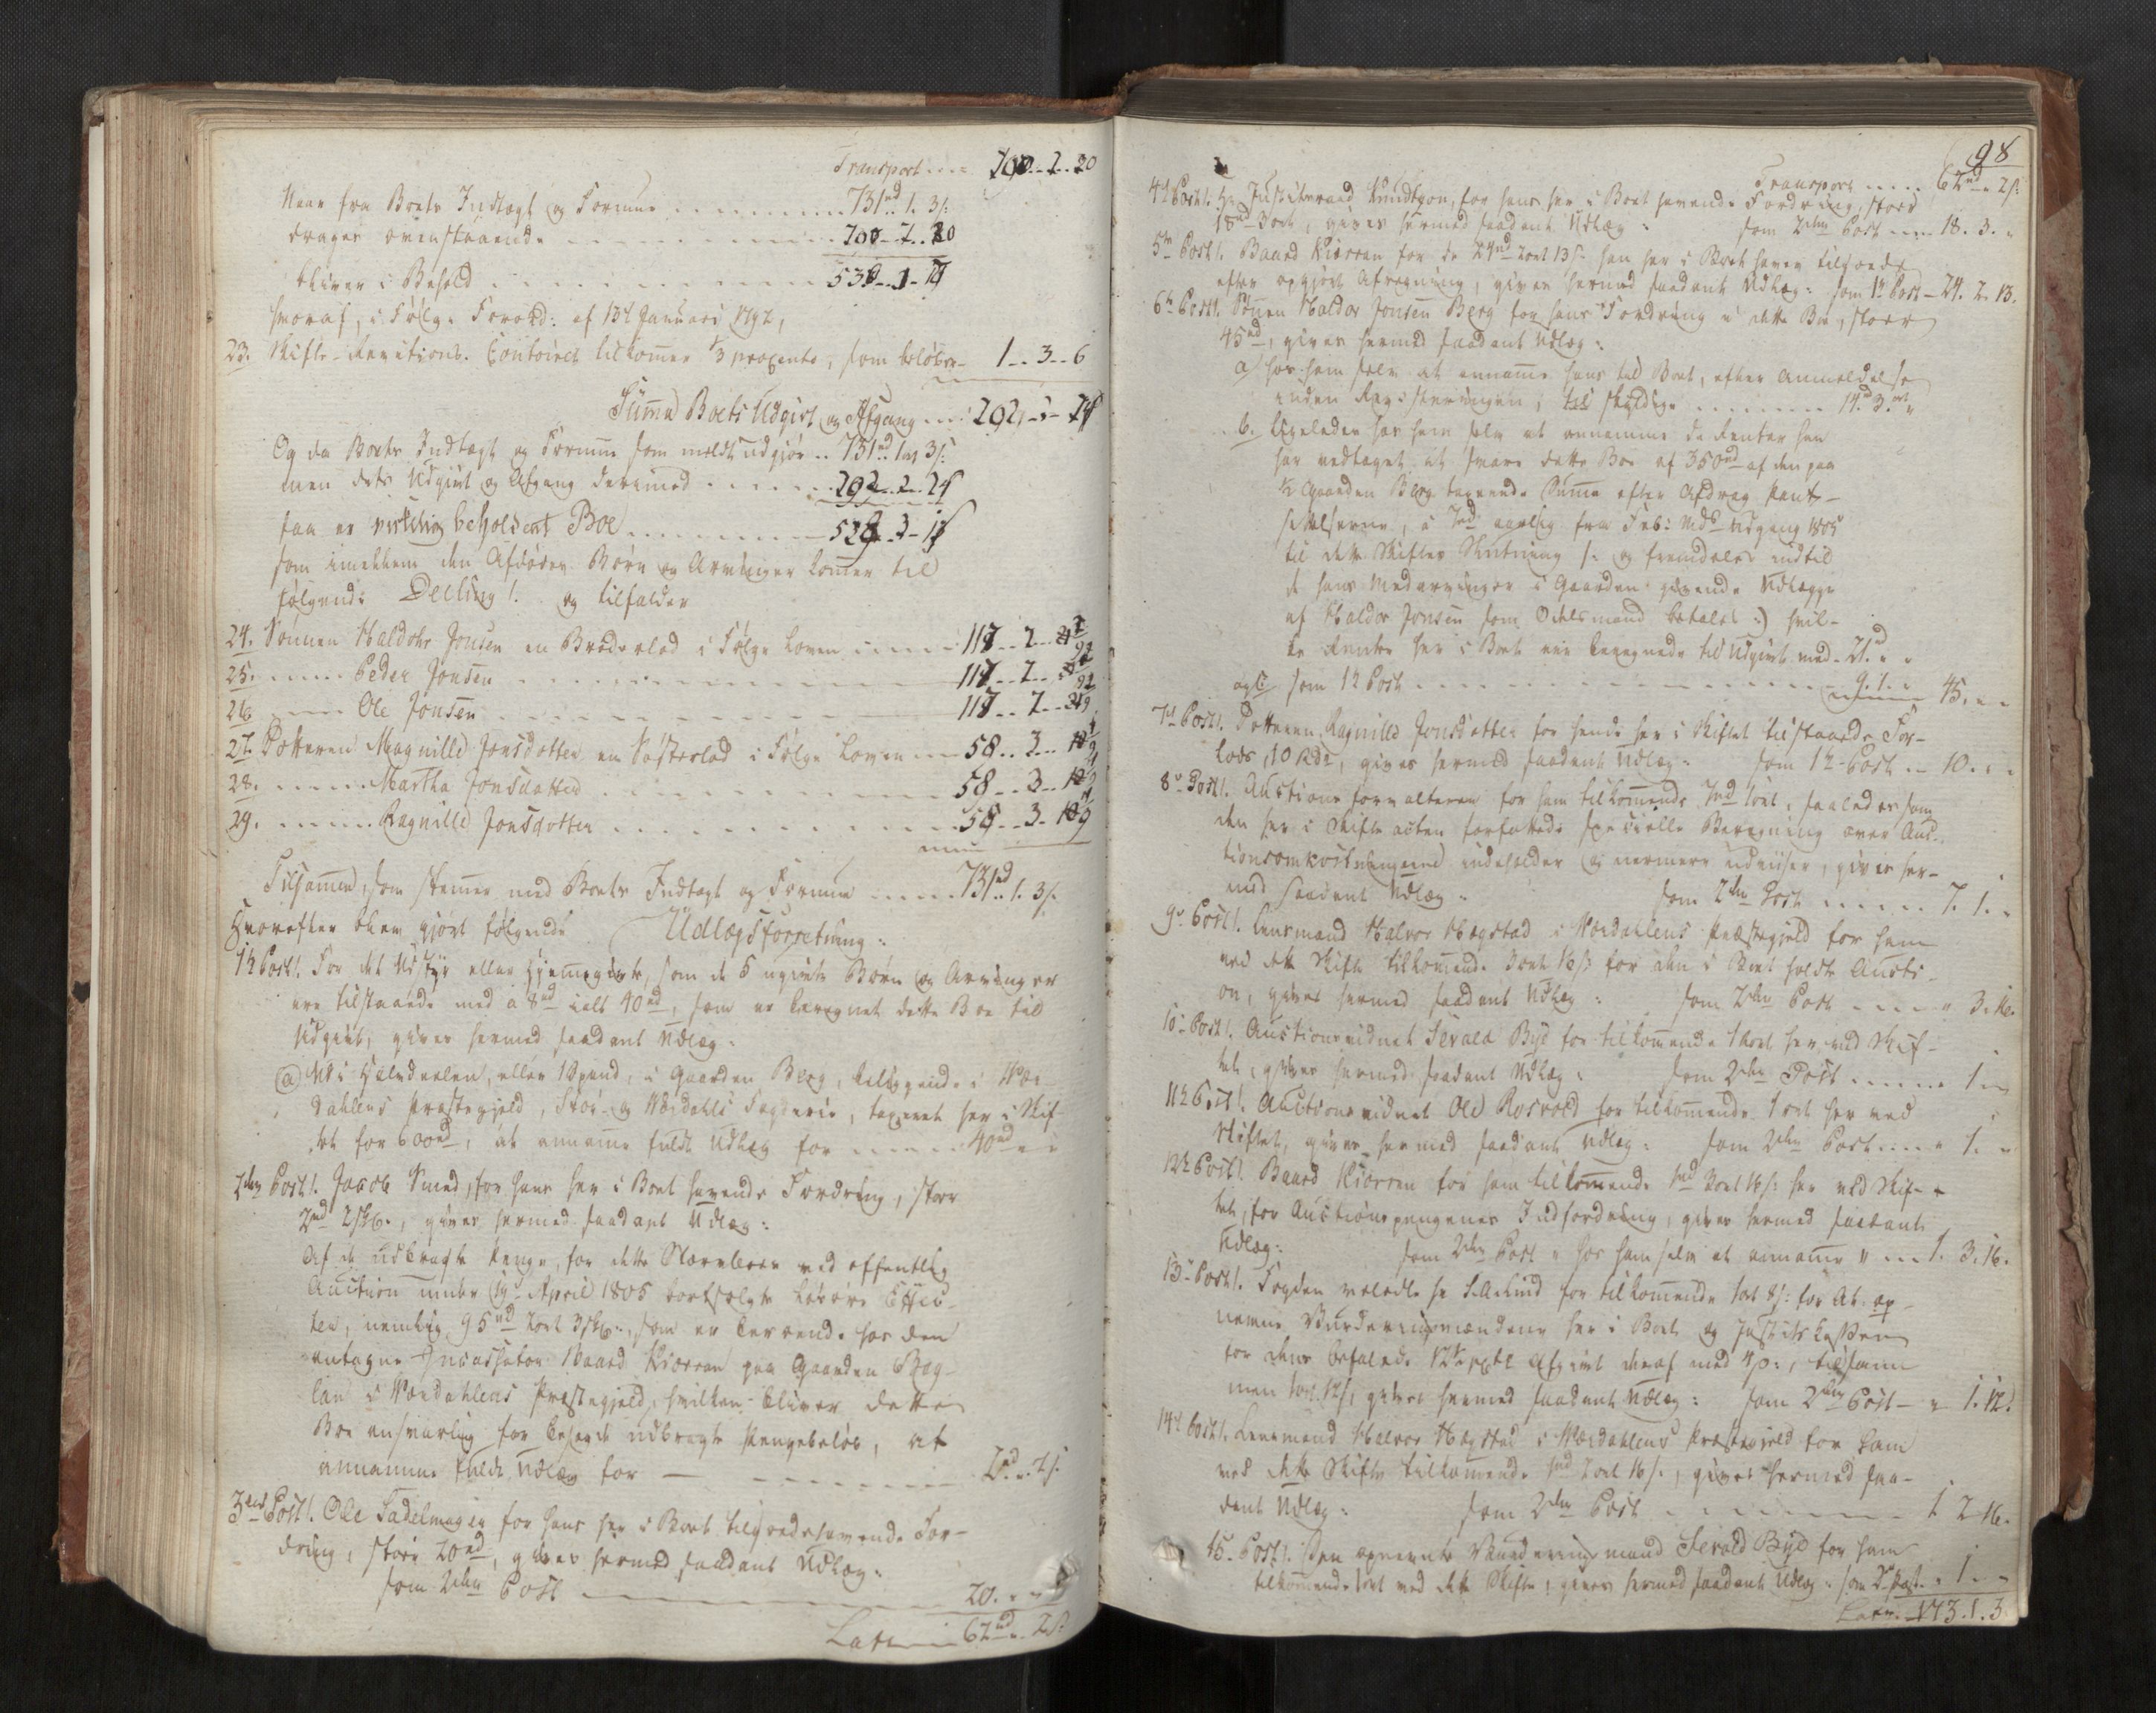 Transport 200..2..20
Naar fra Boets Indtægt og Formue 731rd 1. 3s:
drages ovenstaaende 200..2..20
bliver i Behold
hvoraf, i Følge Forord: af 13d Januari 1792,
23. Skifte-Revisions-Contoiret tilkommer 1/3 procento, som beløber 1..3..6
Summa Boets Udgivt og Afgang 202
Og da Boets Indtægt og Formue som meldt udgiør 731rd 1ort 3s:
men dets Udgivt og Afgang derimod 202
saa er virkelig beholdent Boe
som imellem den Afdødes Børn og Arvinger kommer til
følgende Deeling! og tilfalder
24. Sønnen Haldohr Jonsen en Broderlod i Følge Loven
25. Peder Jonsen
26 Ole Jonsen
27. Dotteren Magnille Jonsdotter en Søsterlod i Følge Loven 58..3..
28. Martha Jonsdotter 58..3..
29. Ragnille Jonsdotter 58..3.
Tilsammen, som stemmer med Boets Indtægt og Formue 731rd 1. 3s.
Hvorefter blev gjort følgende Udlægsforretning:
1te Post!. For det Udstyr eller Hjemmegivte, som de 5 ugivte Børn og Arvinger
ere tilstaaede med à 8rd ialt 40rd, som er beregnet dette Boe til
Udgivt, gives hermed saadant Udlæg:
a) Udi Halvdeelen, eller 1 Spand, i Gaarden Berg, beliggende i Vær-
dahlens Præstegjeld, Stør- og Værdahls Fogderie, taxeret her i Skif-
tet for 600rd, at annamme fuldt Udlæg for 40rd
2den Post!. Jacob Smed, for hans her i Boet havende Fordring, stor
2rd 2sk:, gives hermed saadant Udlæg:
Af de udbragte Penge, for dette Sterboes ved offentlig
Auction under 19de April 1805 bortsolgte Løsøre Effec-
ter, nemlig 95rd 2ort 3sk:, som er beroende hos den
antagne Incassator Baard Kiærran paa Gaarden Bag-
lan i Værdahlens Præstegjeld, hvilken bliver dette
Boe ansvarlig for bemeldt udbragte Pengebeløb, at
annamme fuldt Udlæg for 2rd 2s:
3die Post!. Ole Sadelmager for hans her i Boet tilgodehavende For-
dring, stoer 20rd, gives hermed saadant Udlæg:
som 2den Post 20.
Lat 62rd 2s:
98
Transport 62rd 2s:
4d Post!. Hr Justitsraad Knudtzon, for hans her i Boet havende Fordring, stoer
18rd 3ort, gives hermed saadant Udlæg: som 2den Post 18. 3.
5te Post!. Baard Kiærran for de 24rd 2ort 13s: han her i Boet haver tilgode
efter opgjort Afregning, gives hermed saadant Udlæg: som 1te Post 24. 2. 13.
6te Post!. Sønnen Haldor Jonsen Berg for hans Fordring i dette Boe, stoer
45rd, gives hermed saadant Udlæg:
a) hos ham selv at annamme hans til Boet, efter Anmeldelse
under Registeringen, skyldige 14rd 3ort
b. Ligeledes hos ham selv at annamme de Renter han
har vedtaget at svare dette Boe af 350rd af den paa
1/2 Gaarden Berg taxerede Summa efter Afdrag Pant-
à 7rd aarlig fra Feb: Mds Udgang 1805
til dette Skiftes Slutning /: og fremdeles indtil
de hans Medarvinger i Gaarden givende Udlægge
af Haldor Jonsen som Odelsmand betales :) hvil-
ke Renter her i Boet ere beregnede til Udgivt med 21rd
og c/ som 1te Post 9. 1. 45.
7de Post!. Dotteren Ragnille Jonsdotter for hende her i Skiftet tilstaaede For-
lods, 10 Rdr, gives hermed saadant Udlæg: som 1te Post 10.
8de Post!. Auctionsforvalteren for ham tilkommende 7rd 1ort, saaledes som
den her i Skifte acten forfattede specielle Beregning over Auc-
tionsomkostningerne indeholder og nermere udviiser, gives her-
med saadant Udlæg: som 2den Post 7. 1.
9de Post!. Lensmand Halvor Hægstad i Værdahlens Præstegjeld for ham
ved dette Skifte tilkommende 3ort 16s: for den i Boet holdte Aucti-
on, gives hermed saadant Udlæg: som 2den Post 3. 16.
10de Post!. Auctionsvidnet Sevald Bye for tilkommende 1ort her ved Skif-
tet, gives hermed saadant Udlæg: som 2den Post 1
11te Post!. Auctionsvidnet Ole Rosvold for tilkommende 1ort her ved
Skiftet, gives hermed saadant Udlæg: som 2den Post 1.
12te Post!. Baard Kiærran for ham tilkommende 1rd 3ort 16s: her ved Skif-
tet, for Auctionspengenes Indfordring, gives hermed saadant
Udlæg: som 2den Post hos ham selv at annamme 1. 3. 16.
13de Post!. Fogden velædle Hr for tilkommende 1ort 8s: for At op-
nevne Vurderingsmændene her i Boet og Justitskassen
for dens befalede Afgivt deraf med 4s:, tilsam-
men 1ort 12s, gives hermed saadant Udlæg: som 2den Post 1. 12.
14de Post!. Lensmand Halvor Hægstad i Værdahlens Præstegjeld for ham
ved dette Skifte tilkommende 1rd 2ort 16s:, gives hermed saa-
dant Udlæg: som 2den Post 1. 2. 16.
15. Post!. Den opnevnte Vurderingsmand Sevald Bye for ham
tilkommende 1ort ved dette Skifte, gives hermed saadant Udlæg: som 2. Post. 1
Latr. 173. 1. 3.